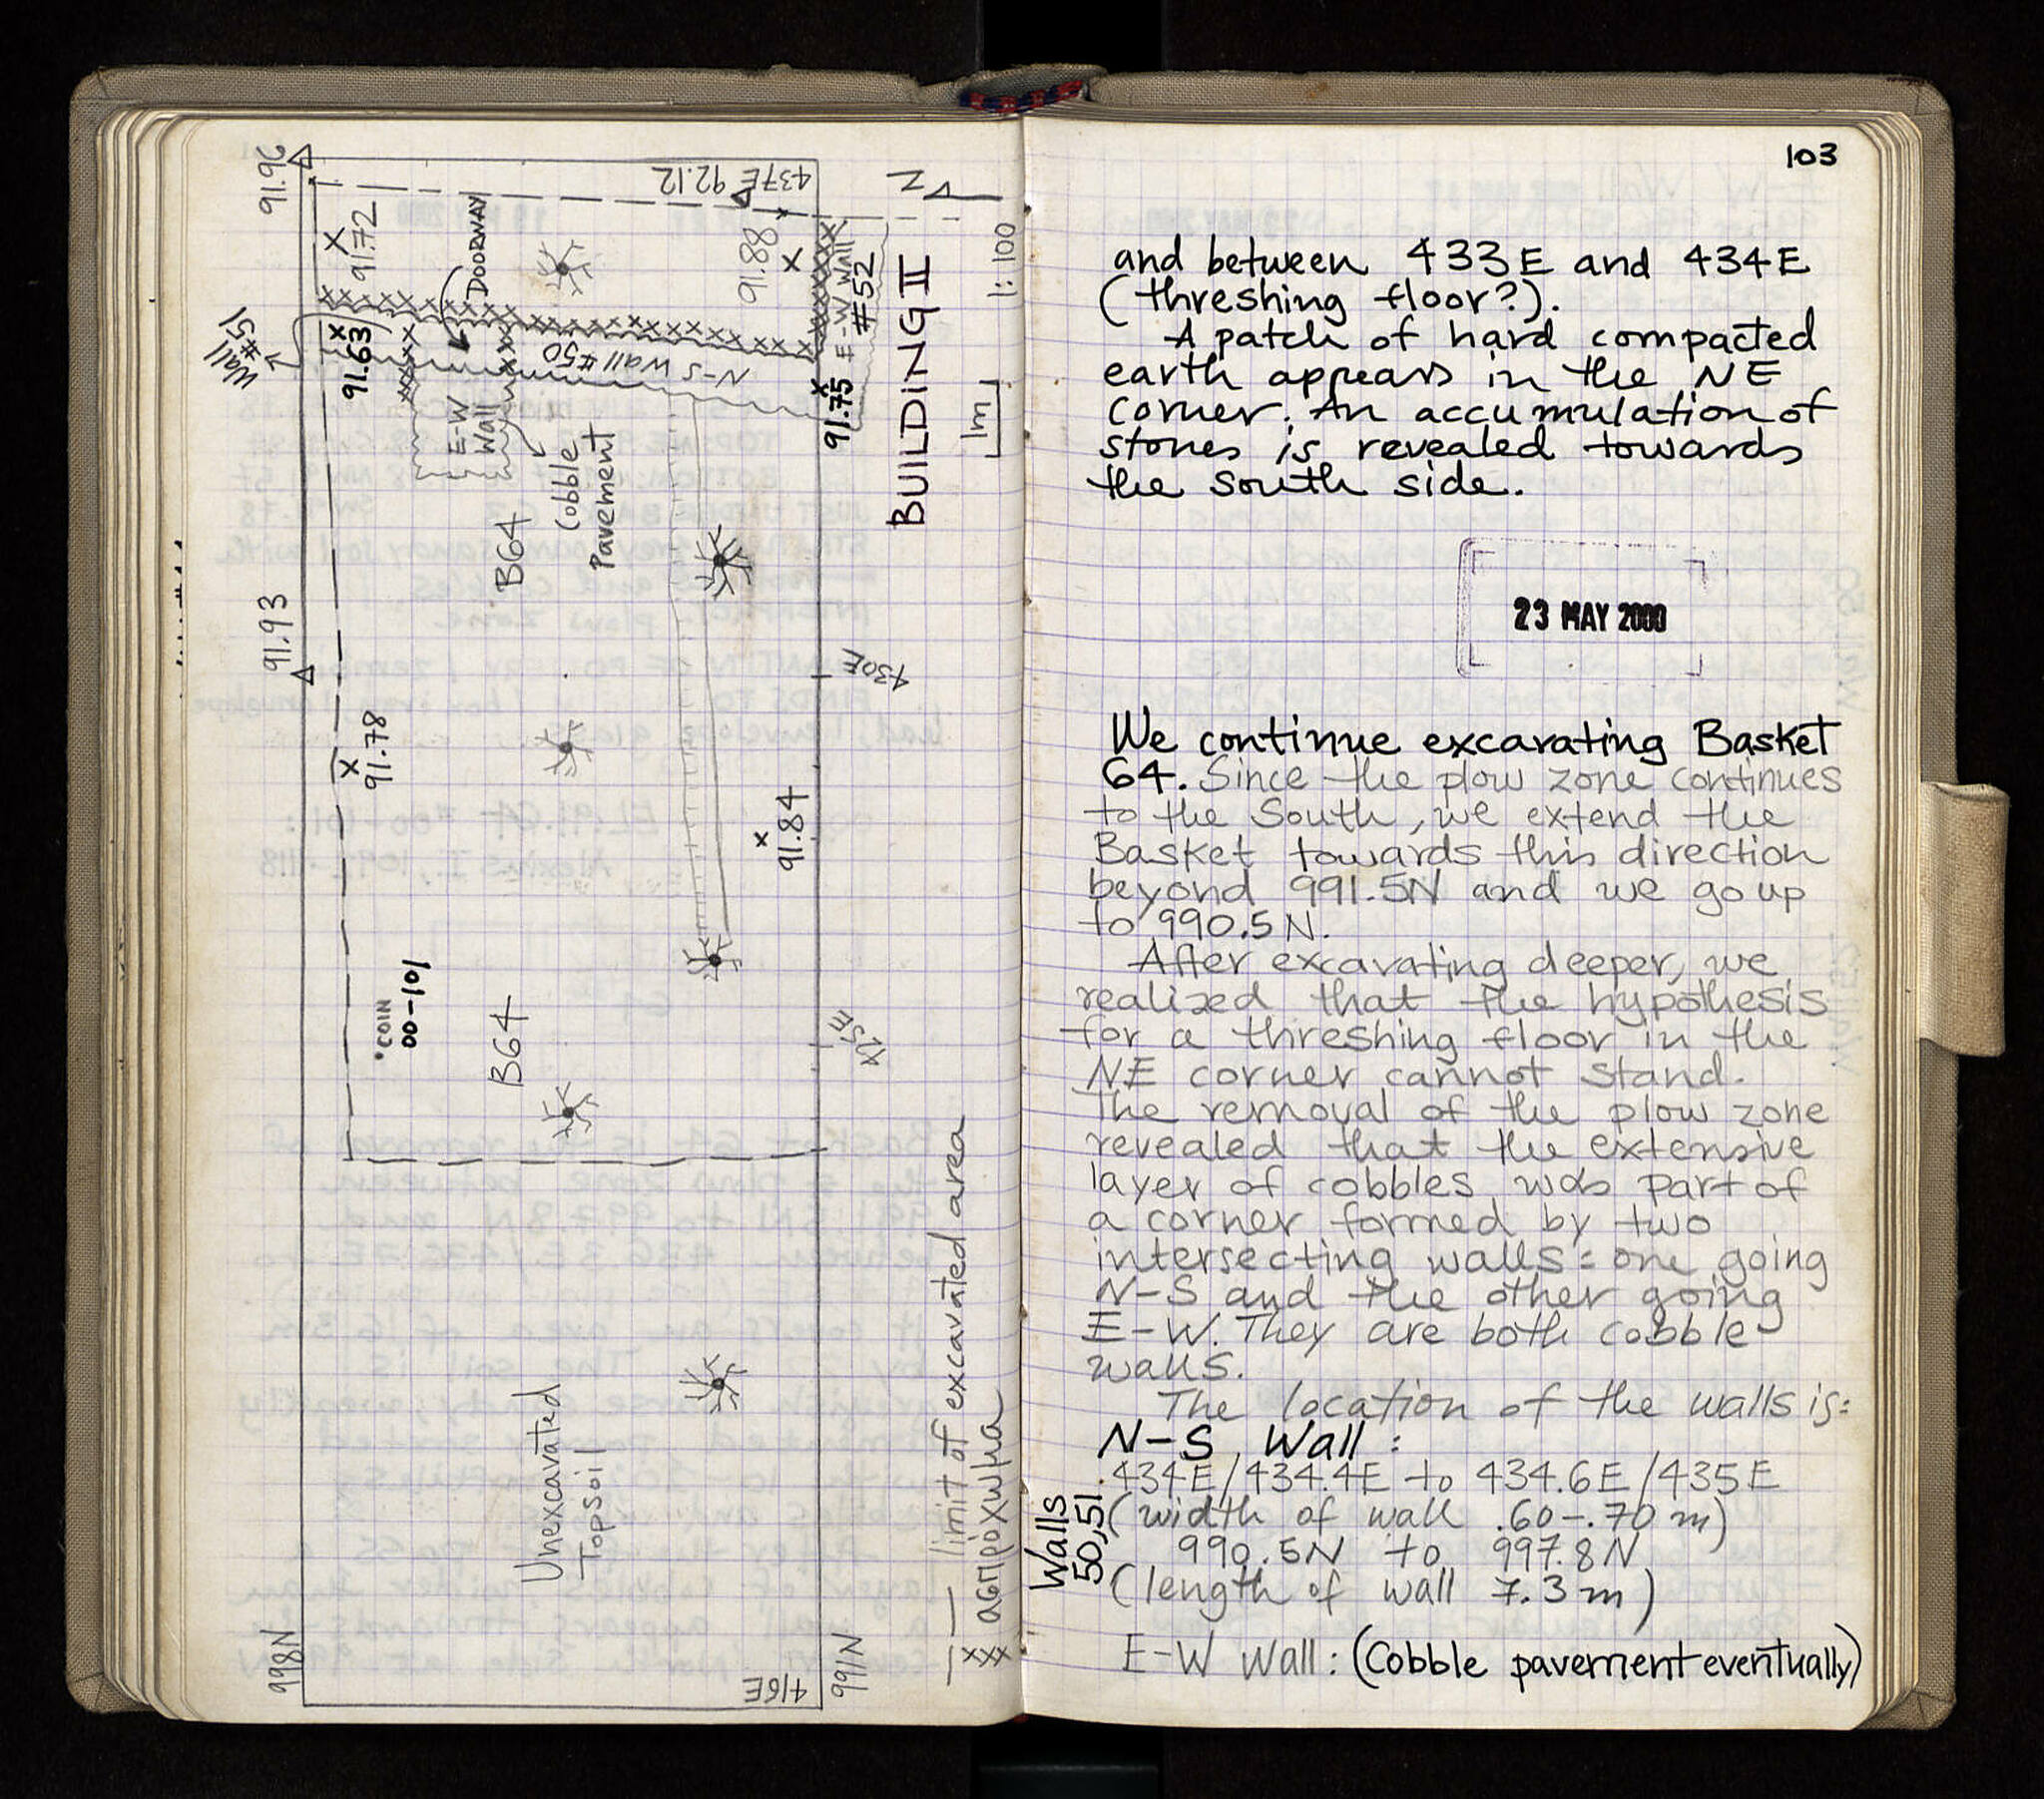 91.96
437E 92.12
N
91.72
DOORWAY
91.88
E-W Wall
#52
Wall
#51
91.63
N-S Wall #50
91.75
BUILDING II
1:100
1m
E-W
Wall
Cobble
Pavement
B64
91.93
430E
91.78
91.84
COIN
00-101
B64
425E
Unexcavated
Topsoil
998N
416E
991N
limit of excavated area
XX ασπρόχωμα
103
and between 433E and 434E
(threshing floor?).
A patch of hard compacted
earth appears in the NE
corner. An accumulation of
stones is revealed towards
the south side.
23 MAY 2000
We continue excavating Basket
64. Since the plow zone continues
to the South, we extend the
Basket towards this direction
beyond 991.5N and we go up
to 990.5N.
After excavating deeper, we
realized that the hypothesis
for a threshing floor in the
NE corner cannot stand.
The removal of the plow zone
revealed that the extensive
layer of cobbles was part of
a corner formed by two
intersecting walls: one going
N-S and the other going
E-W. They are both cobble
walls.
The location of the walls is:
N-S Wall:
434E/434.4E to 434.6E/435E
(width of wall .60-.70 m)
990.5N to 997.8N
(length of wall 7.3 m)
Walls
50,51
E-W Wall: (Cobble pavement eventually)